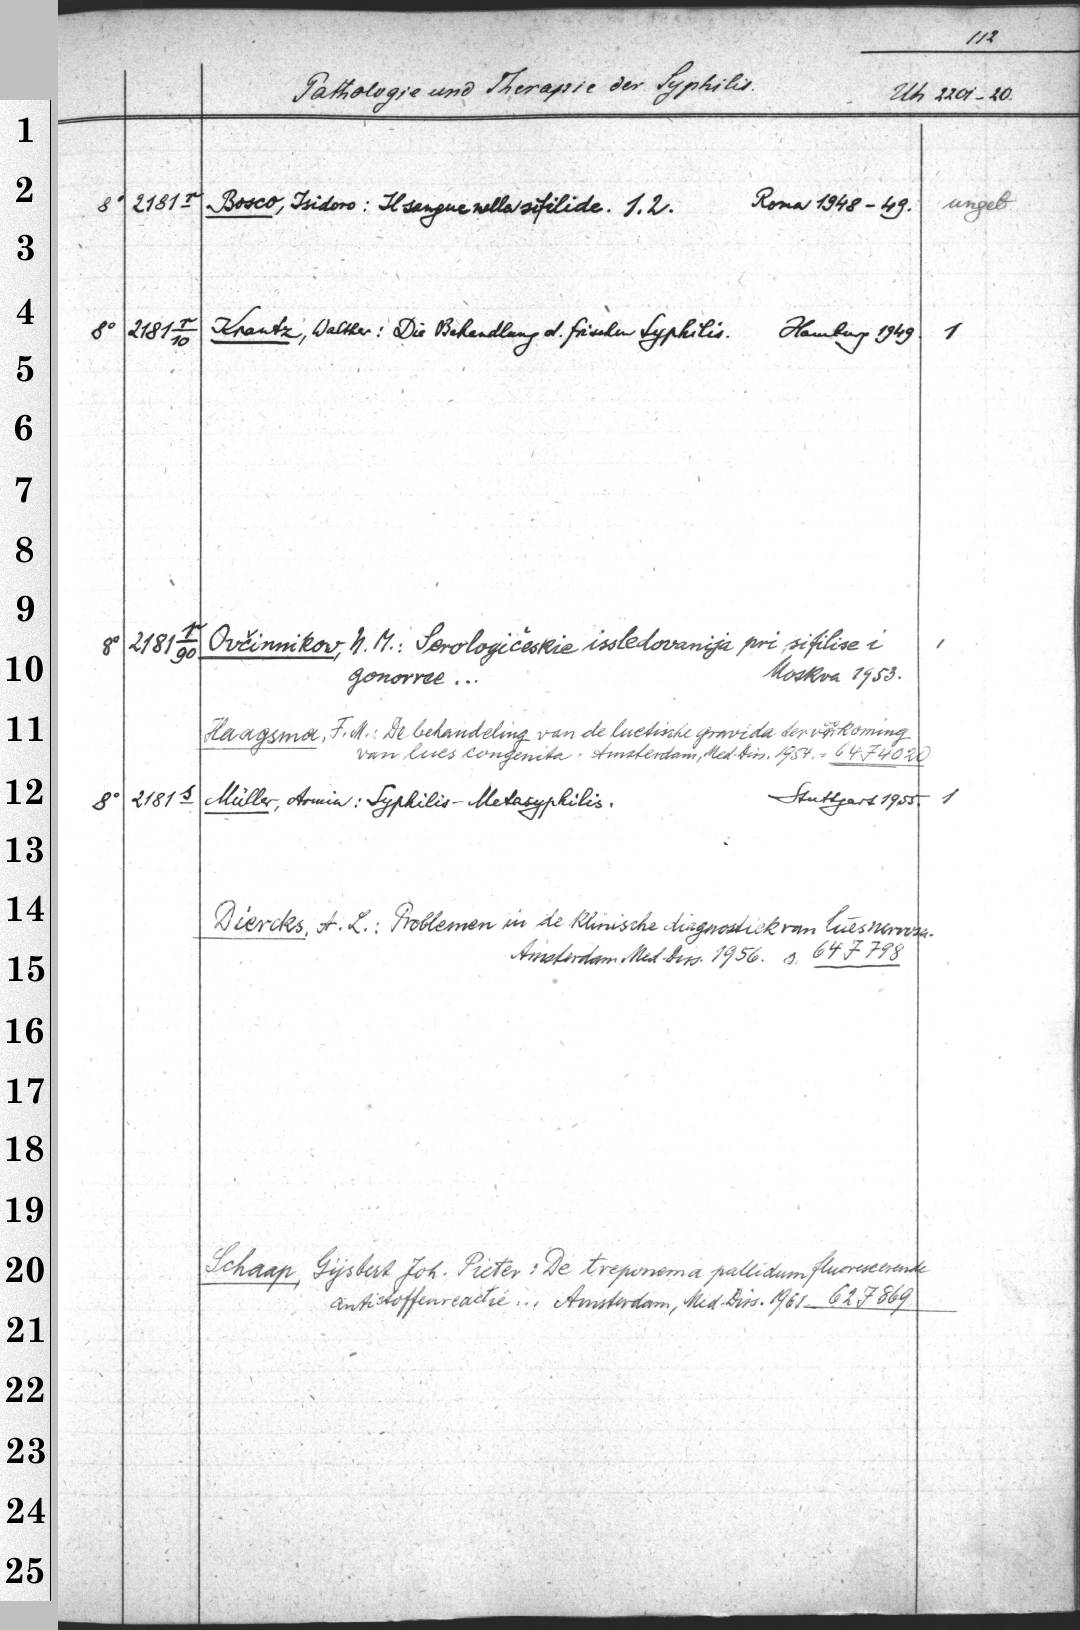 112
Pathologie und Therapie der Syphilis. Uh 2201-20.
1
2
8° 2181 r Bosco, Isidoro: Il sangue nella sifilide. 1.2. Roma 1948-49. ungeb
3
4
8° 2181 r/10 Krantz, Walther: Die Behandlung d. frischen Syphilis. Hamburg 1949. 1
5
6
7
8
9
8° 2181 r/90 Ovčinnikov, N. M.: Serologičeskie issledovanija pri sifilise i 1
10
gonorree ... Moskva 1953.
11
Haagsma, F. M.: De behandeling van de luetische gravida ter voorkoming
van lues congenita. Amsterdam, Med. Diss. 1954. 64 F 4020
12
8° 2181 s Müller, Armin: Syphilis-Metasyphilis. Stuttgart 1955. 1
13
14
Diercks, A. L.: Problemen in de klinische diagnostiek van lues nervosa.
15
Amsterdam Med. Diss. 1956. s. 64 F 798
16
17
18
19
20
Schaap, Gijsbert Joh. Pieter: De treponema pallidum fluorescerende
antistoffenreactie ... Amsterdam, Med. Diss. 1961 62 F 869
21
22
23
24
25